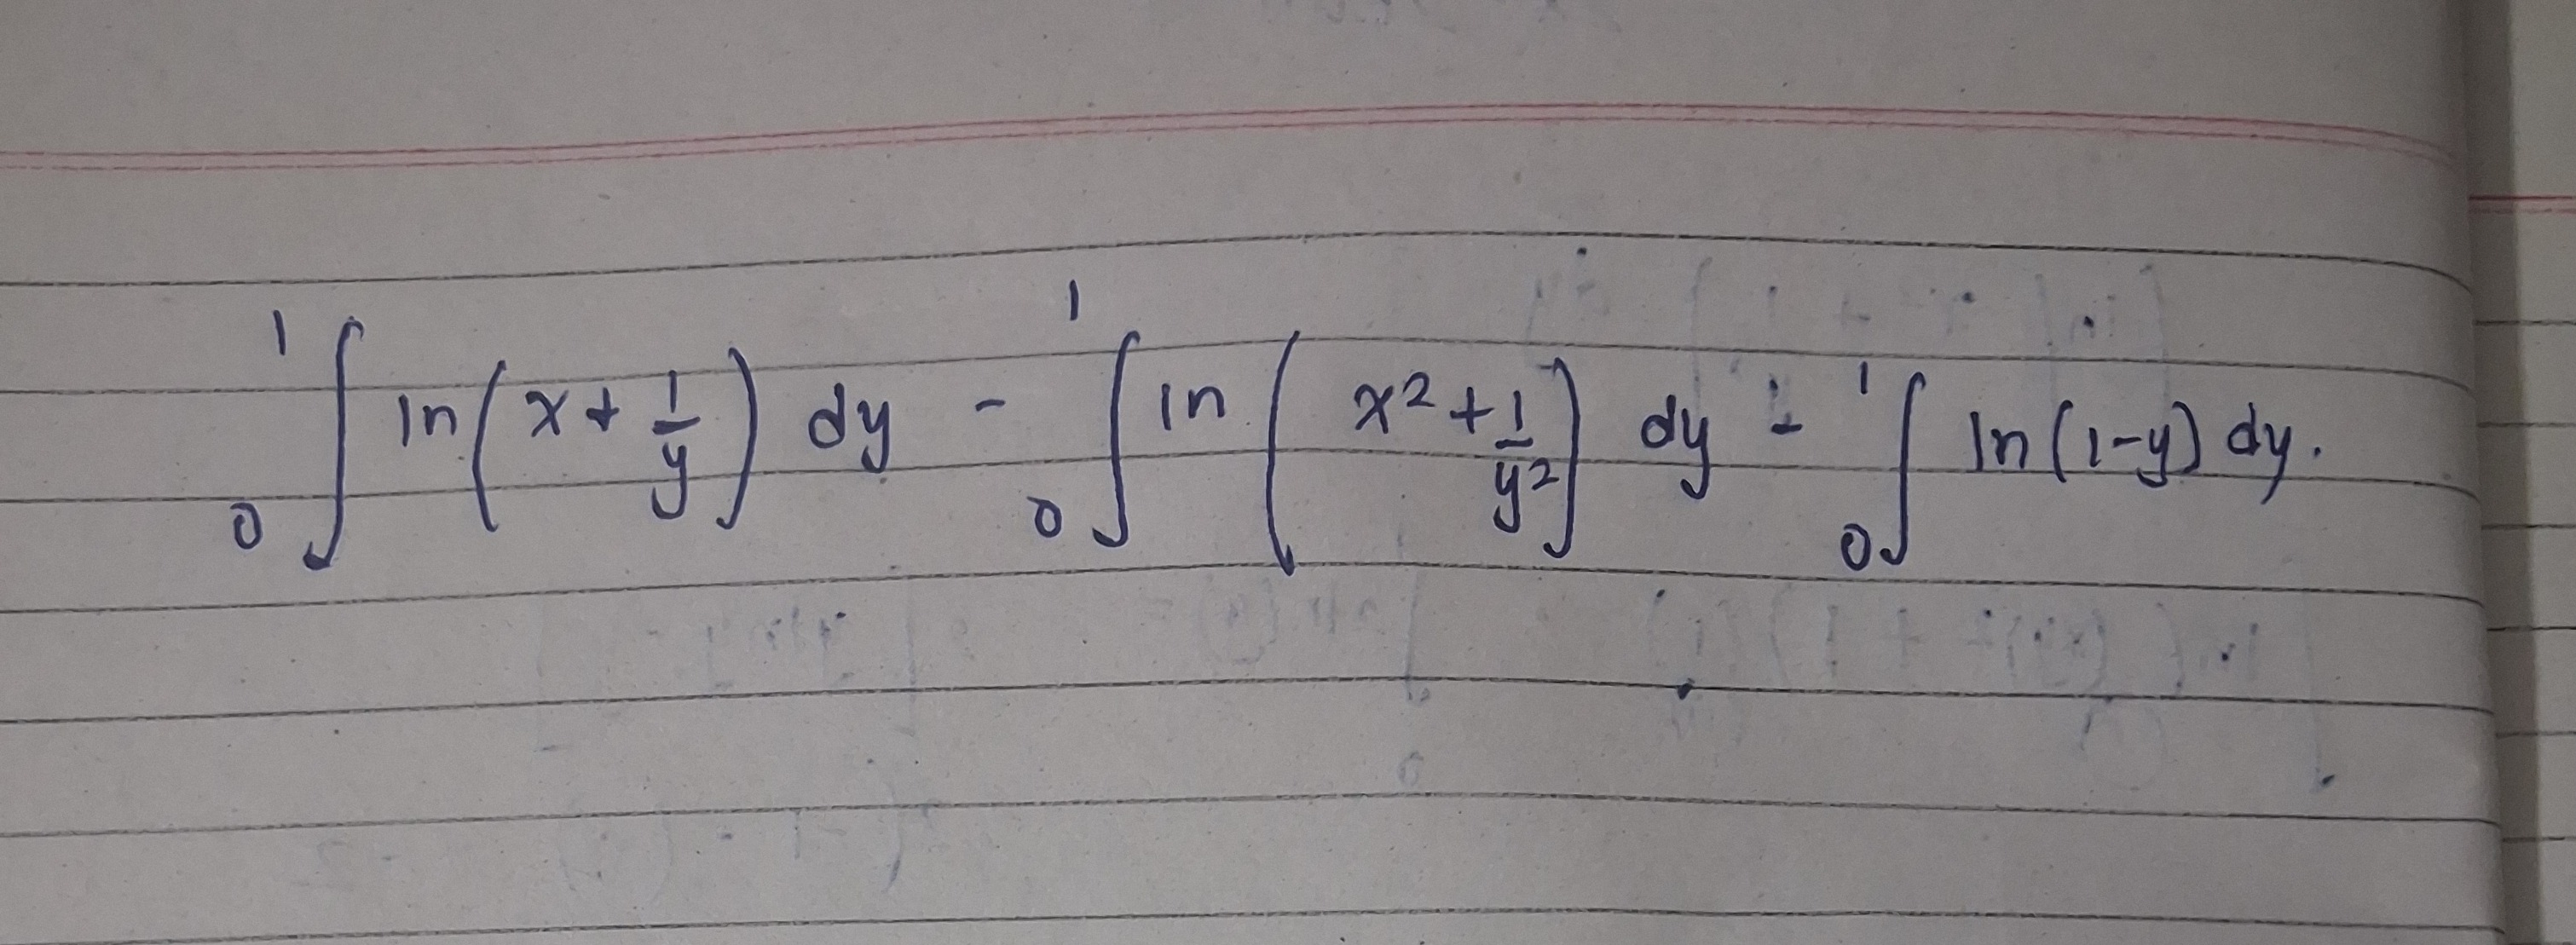 ∫₀¹ ln(x + 1/y) dy - ∫₀¹ ln(x² + 1/y²) dy - ∫₀¹ ln(1-y) dy.